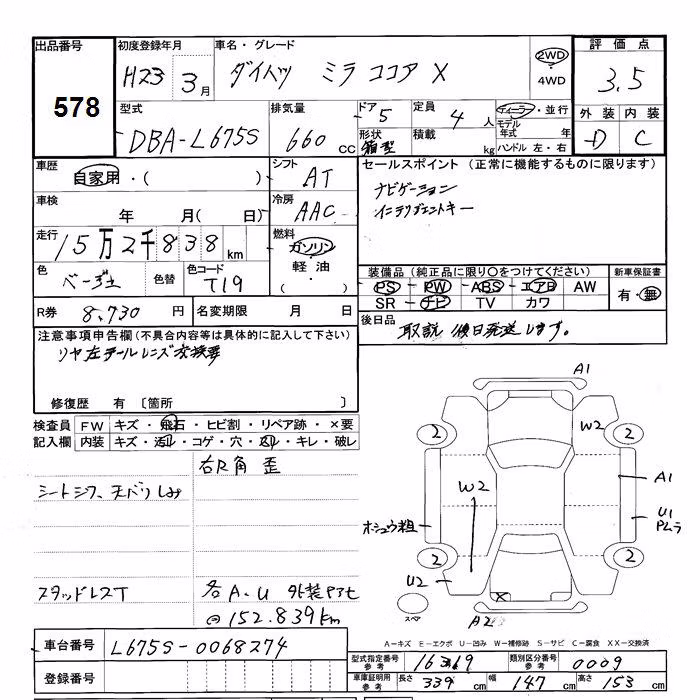 出品番号 初度登録年月 車名・グレード 評価点
578
H23 3月 ダイハツ ミラ ココア X 2WD・4WD 3.5
型式 排気量 ドア 5 定員 4人 ディーラー・並行 外装 内装
DBA-L675S 660cc 形状 箱型 積載 kg モデル年式 年 ハンドル 左・右 D C
車歴 シフト セールスポイント(正常に機能するものに限ります)
自家用・( ) AT ナビゲーション
車検 冷房 インテリジェントキー
年 月( 日) AAC
走行 燃料
15万2千838km ガソリン
色 色替 色コード 軽油・ 装備品(純正品に限り○をつけてください) 新車保証書
ベージュ T19 PS・PW・ABS・エアB AW 有・無
SR・ナビ TV カワ
R券 8,730円 名変期限 月 日 後日品
取説 後日発送します。
注意事項申告欄(不具合内容等は具体的に記入して下さい)
リヤ左テールレンズ交換要
修復歴 有〔箇所 〕
検査員 FW キズ・飛石・ヒビ割・リペア跡・×要
記入欄 内装 キズ・汚れ・コゲ・穴・スレ・キレ・破レ
右Rパネ角 歪
シートシワ、天バリしみ
スタッドレスT 各A・U 外装
@152.839km
車台番号 L675S-0068274
登録番号
A1
2 W2 2
W2 A1
U1
U2 2 2
スペア A2
A-キズ E-エクボ U-凹み W-補修跡 S-サビ C-腐食 XX-交換済
型式指定番号 参考 16369 類別区分番号 参考 0009
車庫証明用 参考 長さ 339cm 幅 147cm 高さ 153cm